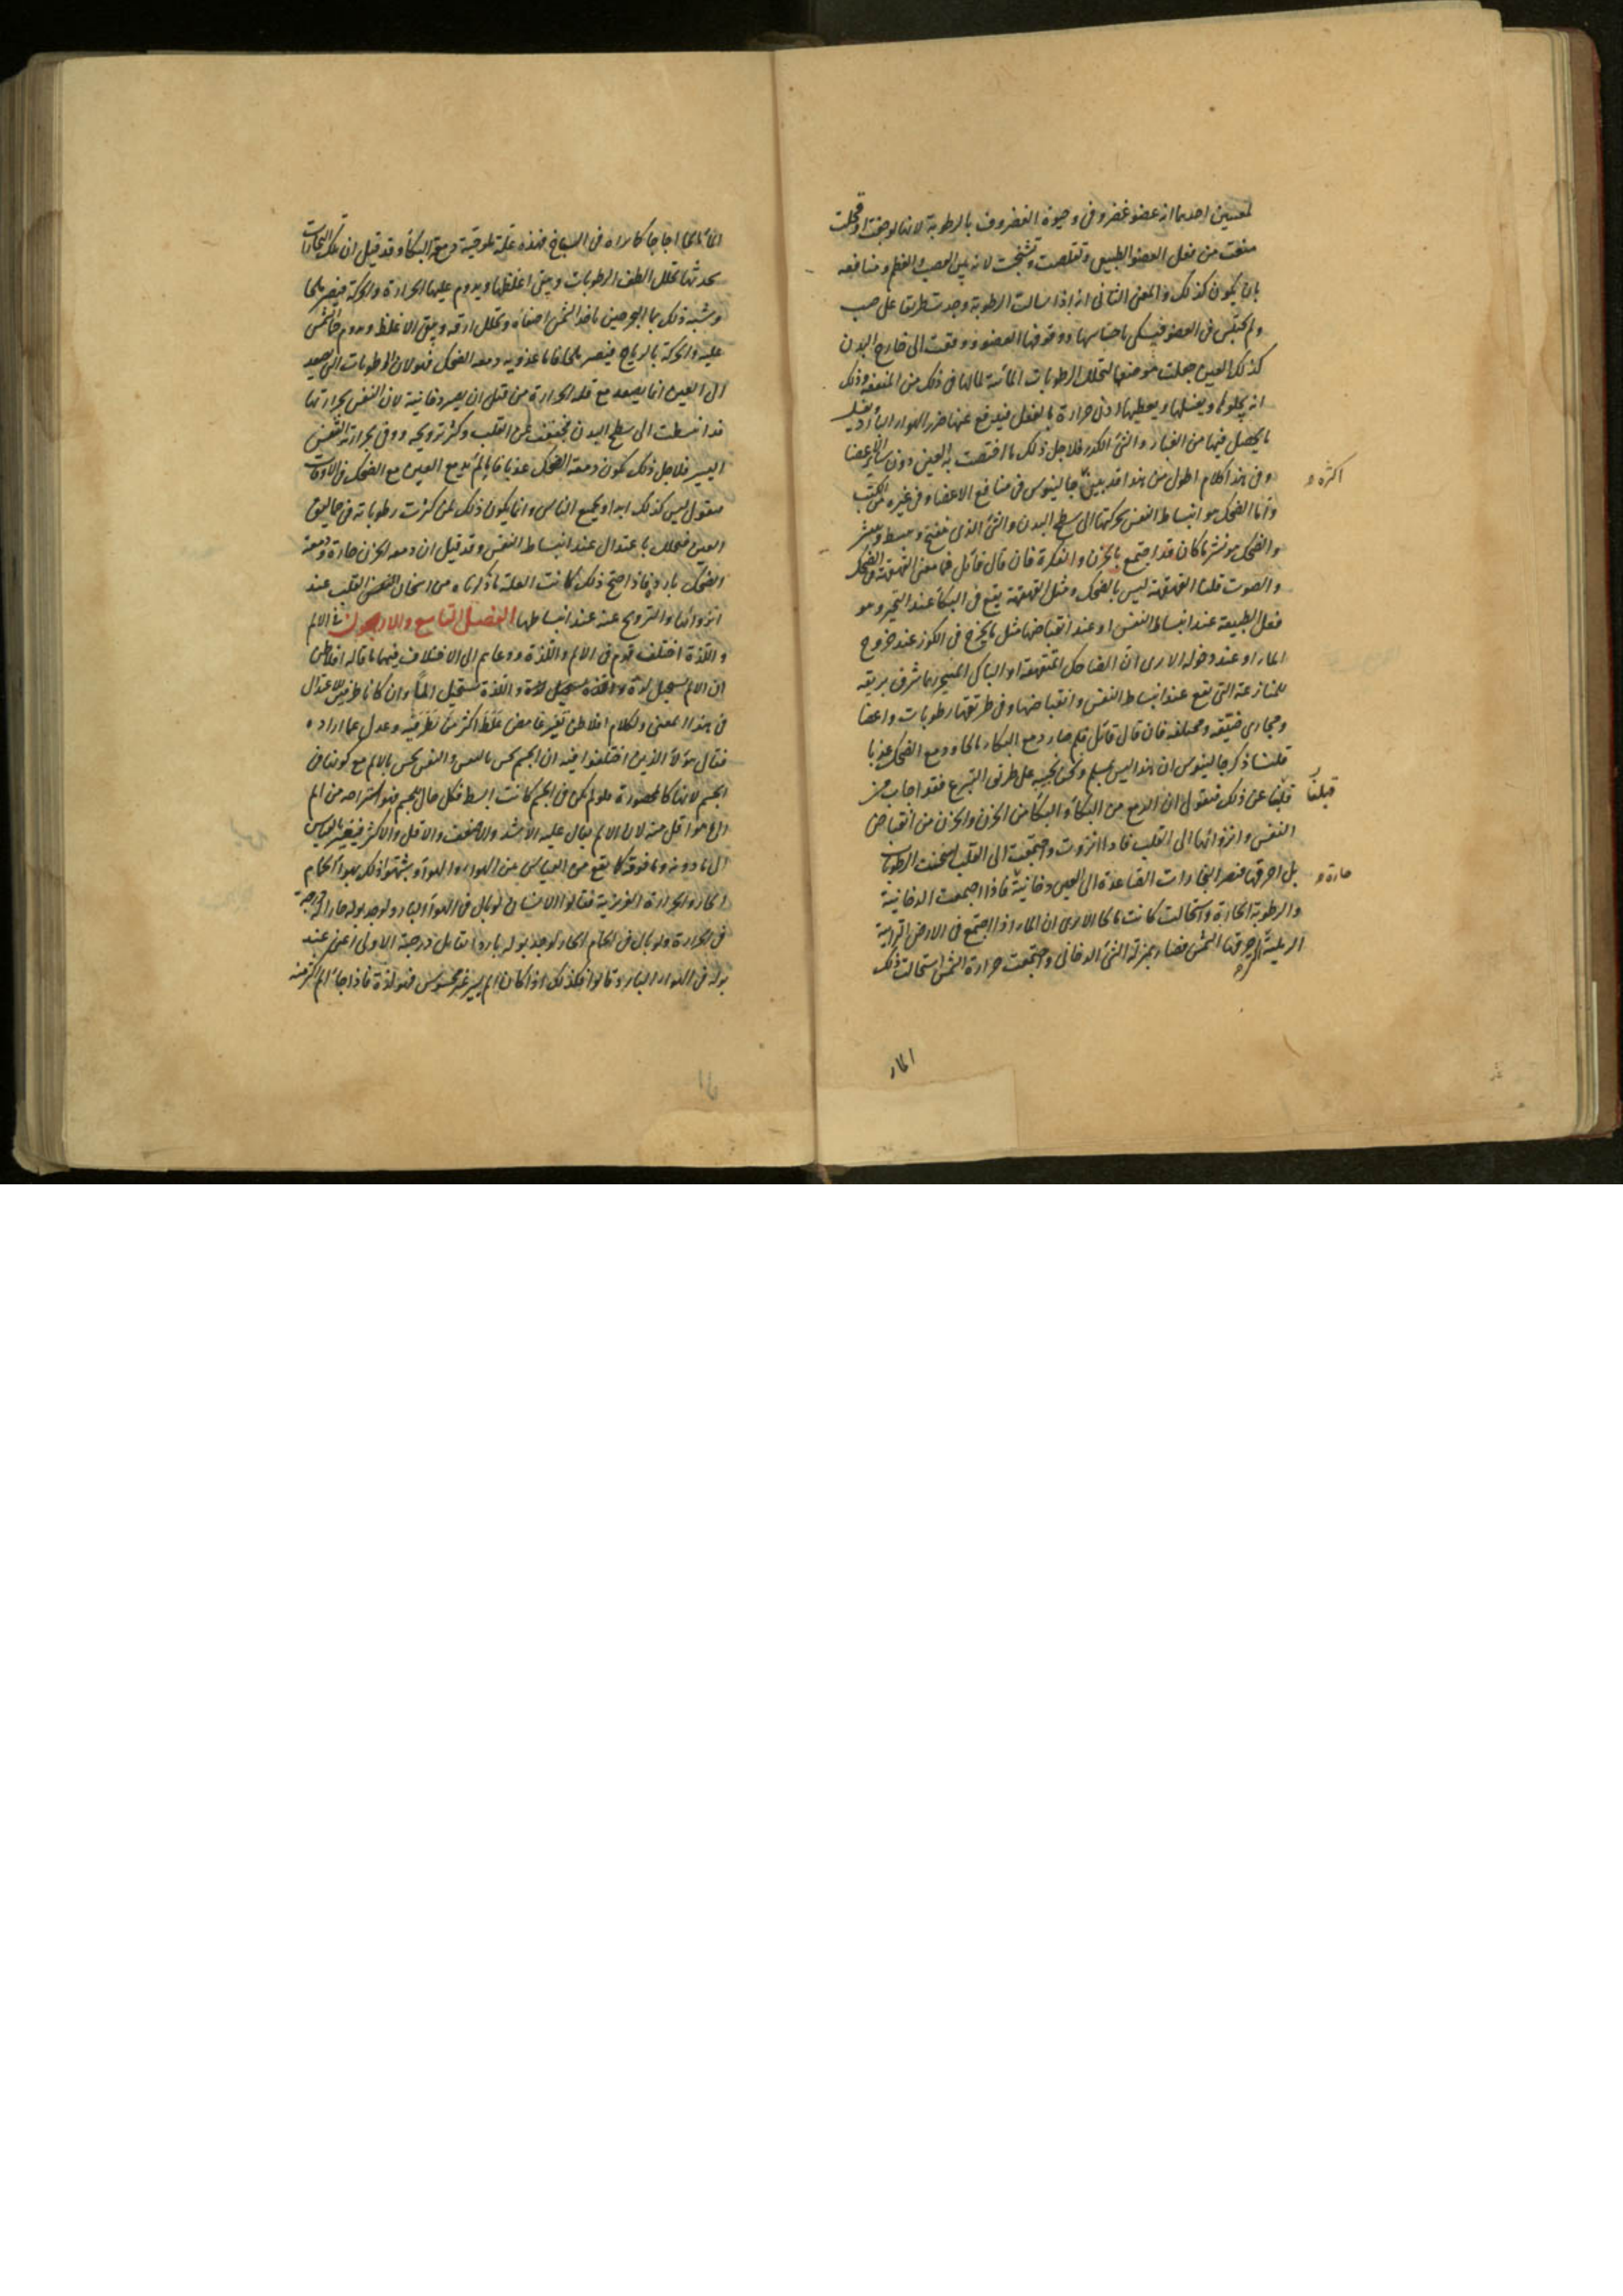 لمعنيين احدهما انه عضو غضروفى وحيوة الغضروف بالرطوبة لانها لو جفت او قحلت
منعت من فعل العضو الطبيعى وتقلصت وتشنجت لانه بين العصب والعظم ومنافعه
بان يكون كذلك والمعنى الثانى انه اذا سالت الرطوبة وجدت طريقا على صب
ولم تحتبس فى العضو باحتباسها ووقوفها العضو ودفعت الى خارج البدن
كذلك العين جعلت موضعا لتحلل الرطوبات المائية لما لها فى ذلك من المنفعة وذلك
انه يجلوها ويغسلها ويعطيها ادنى حرارة بالفعل فيدفع عنها ضرر الهواء البارد ويغسل
ما يحصل فيها من الغبار والشئ الكدر فلاجل ذلك ما اختصت به العين دون سائر الاعضا
وفى هذا كلام اطول من هذا قد بينه جالينوس فى منافع الاعضا وفى غيره من الكتب
اكثره
واما الضحك هو انبساط النفس بحركتها الى سطح البدن والشئ الذى ينفتح وينبسط وينتشر
والضحك هو نشر ما كان قد اجتمع بالحزن والفكرة فان قال قائل فما معنى القهقهة فى الضحك
والصوت قلنا القهقهة ليس بالضحك ومثل القهقهة يقع فى البكا عند التحير وهو
فعل الطبيعة عند انبساط النفس او عند انقباضها مثل ما يخرج فى الكوز عند خروج
الماء او عند دخوله الا ترى ان الضاحك المتقهقه او الباكى ربما شرق بريقه
للمنازعة التى تقع عند انبساط النفس وانقباضها وفى طريقها رطوبات واعضا
ومجارى ضيقه ومختلفة فان قال قائل فلم صار دمع البكاء مالحا ودمع الضحك عذبا
قلنا ذكر جالينوس ان هذا ليس بمسلم ونحن نجيبه على طريق التبرع فقد اجاب من
قبلنا
قبلنا عن ذلك فنقول ان الدمع من البكاء والبكا من الحزن والحزن من انقباض
النفس وانزوائها الى القلب فاذا انزوت واجتمعت الى القلب اسخنت الرطوبات
حارة
بل احرقتها فتصير البخارات الصاعدة الى العين دخانية فاذا اجتمعت الدخانية
والرطوبة الحارة واستحالت كانت مالحا الا ترى ان الماء اذا اجتمع فى الارض الترابية
الرملية احرقتها الشمس فصار بمنزلة الشئ الدخانى واجتمعت حرارة الشمس استحالت ذلك
الماء
الماء مالحا اجاجا كما نراه فى السباخ فهذه علة ملوحية دمعة البكا وقد قيل ان تلك البخارات
يحدثها تحلل الطف الرطوبات ويبقى اغلظها ويدوم عليها الحرارة والحركة فيصير مالحا
وشبه ذلك بماء البحر حين ياخذ الشمس اصفاه وتحلل ارقه ويبقى الاغلظ ويدوم حر الشمس
عليه والحركة بالرياح فيصير مالحا فاما عذوبة دمعة الضحك فهو لان الرطوبات التى يصعد
الى العين انما يصعد مع قلة الحرارة من قبل ان يصير دخانية لان النفس بحرارتها
قد انبسطت الى سطح البدن فخففت عن القلب وكثر ترويحه ووفى بحرارته النفس
اليسير فلاجل ذلك يكون دمعة الضحك عذبا فاما لم يدمع العين مع الضحك فى الاوقات
فنقول ليس كذلك ابدا ويجمع الناس وانما يكون ذلك لمن كثرت رطوباته فى حوالى
العين فتحلل باعتدال عند انبساط النفس وقد قيل ان دمعة الحزن حارة ودمعة
الضحك باردة فاذا صح ذلك كانت العلة ما ذكرناه من اسخان النفس القلب عند
انزوائها والترويح عنه عند انبساطها الفصل التاسع والاربعون فى الالم
واللذة اختلف قوم فى الالم واللذة ودعاهم الى الاختلاف فيهما ما قاله افلاطن
ان الالم يستحيل لذة واللذة تستحيل الما وان كانا طرفين للاعتدال
فى هذا المعنى ولكلام افلاطن تفسير غامض غلط اكثر من نظر فيه وعدل عما اراده
فقال هؤلاء الذين اختلفوا فيه ان الجسم يحس باللمس والنفس يحس بالالم مع كونها فى
الجسم لانها كالمحصورة ولو لم تكن فى الجسم كانت ابسط فكل حال للجسم فهو استراحه من الم
الى هو اقل منه لان الالم يقال عليه الاشد والاضعف والاقل والاكثر فيتغير بالقياس
الى ما دونه وما فوقه كما يقع من القياس بين الهواء والهواء وشبهوا ذلك بهواء الحمام
الحار والحرارة الغريزية فقالوا الانسان لو بال فى الهواء البارد لوجد بوله حارا لخروجه
فى الحرارة ولو بال فى الحمام الحار لوجد بوله باردا درجة الاولى اعنى عند
بوله فى الهواء البارد وقالوا فكذلك اذا كان الم يسير غير محسوس فهو لذة فاذا جاء الم اكثر منه